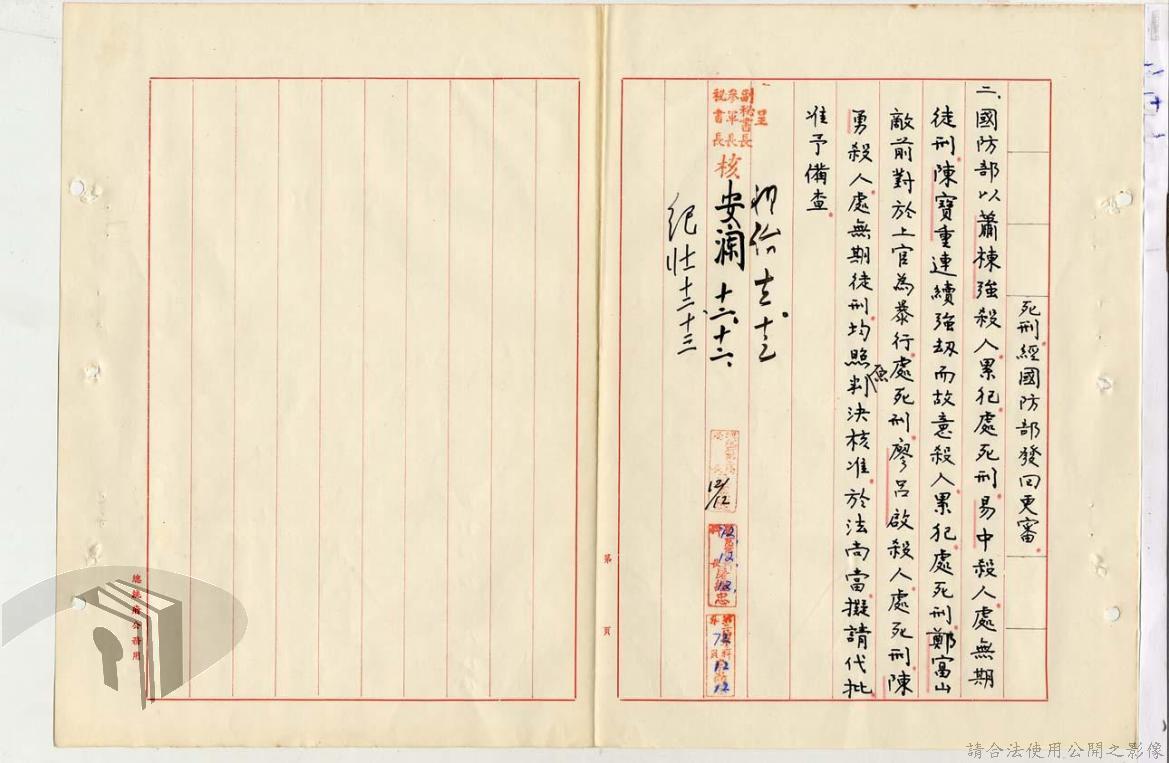 死刑經國防部發回更審
二、國防部以蕭棟強殺人累犯處死刑易中殺人處無期
徒刑陳寶重連續強劫而故意殺人累犯處死刑鄭富山
敵前對於上官為暴行處死刑廖呂啟殺人處死刑陳
勇殺人處無期徒刑均照原判決核准於法尚當擬請代批
准予備查
呈
副秘書長
參軍長
秘書長
核
安瀾 十二、十二、
紀壯 十二十三
12/12
72.12.12.
72.12.12
第 頁
總統府公務用
請合法使用公開之影像